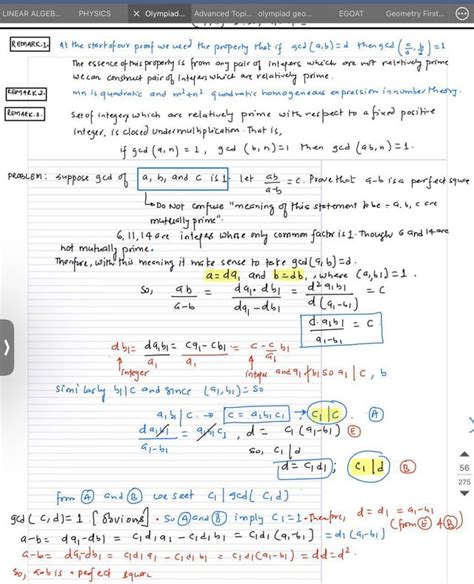 LINEAR ALGEB...
PHYSICS
× Olympiad...
Advanced Topi...
olympiad geo...
EGOAT
Geometry First...
REMARK.1. At the start of our proof we used the property that if gcd(a,b)=d then gcd(a/d, b/d)=1
The essence of this property is from any pair of integers which are not relatively prime
we can construct pair of integers which are relatively prime.
REMARK.2. mn is quadratic and m²+n² quadratic homogeneous expression in number theory.
REMARK.3. Set of integers which are relatively prime with respect to a fixed positive
integer, is closed under multiplication. That is,
if gcd(a,n)=1, gcd(b,n)=1 then gcd(ab,n)=1.
PROBLEM: suppose gcd of a, b, and c is 1. let ab/a-b = c. Prove that a-b is a perfect square
Do NOT confuse "meaning of this statement to be - a, b, c are
mutually prime".
6, 11, 14 are integers whose only common factor is 1. Though 6 and 14 are
not mutually prime.
Therefore, with this meaning it make sense to take gcd(a,b)=d.
a=da₁ and b=db₁, where (a₁,b₁)=1.
So, ab/a-b = da₁·db₁/da₁-db₁ = d²a₁b₁/d(a₁-b₁) = c
d·a₁b₁/a₁-b₁ = c
db₁ = da₁b₁/a₁ = ca₁-cb₁/a₁ = c - c/a₁ b₁
integer
integer and a₁∤b₁ so a₁|c
Similarly b₁|c and since (a₁,b₁)= so
a₁b₁|c → c=a₁b₁c₁ , c₁|c Ⓐ
da₁b₁/a₁-b₁ = a₁b₁c₁, d = c₁(a₁-b₁) Ⓔ
so, c₁|d
d=c₁d₁; c₁|d Ⓑ
from Ⓐ and Ⓑ we see c₁|gcd(c,d)
gcd(c,d)=1 [obvious]. So Ⓐ and Ⓑ imply c₁=1. Therefore, d=d₁=a₁-b₁
a-b = da₁-db₁ = c₁d₁a₁-c₁d₁b₁ = c₁d₁(a₁-b₁) = d₁(a₁-b₁)
a-b = da₁-db₁ = c₁d₁a₁-c₁d₁b₁ = c₁d₁(a₁-b₁) = dd=d².
So, a-b is a perfect square
56
275